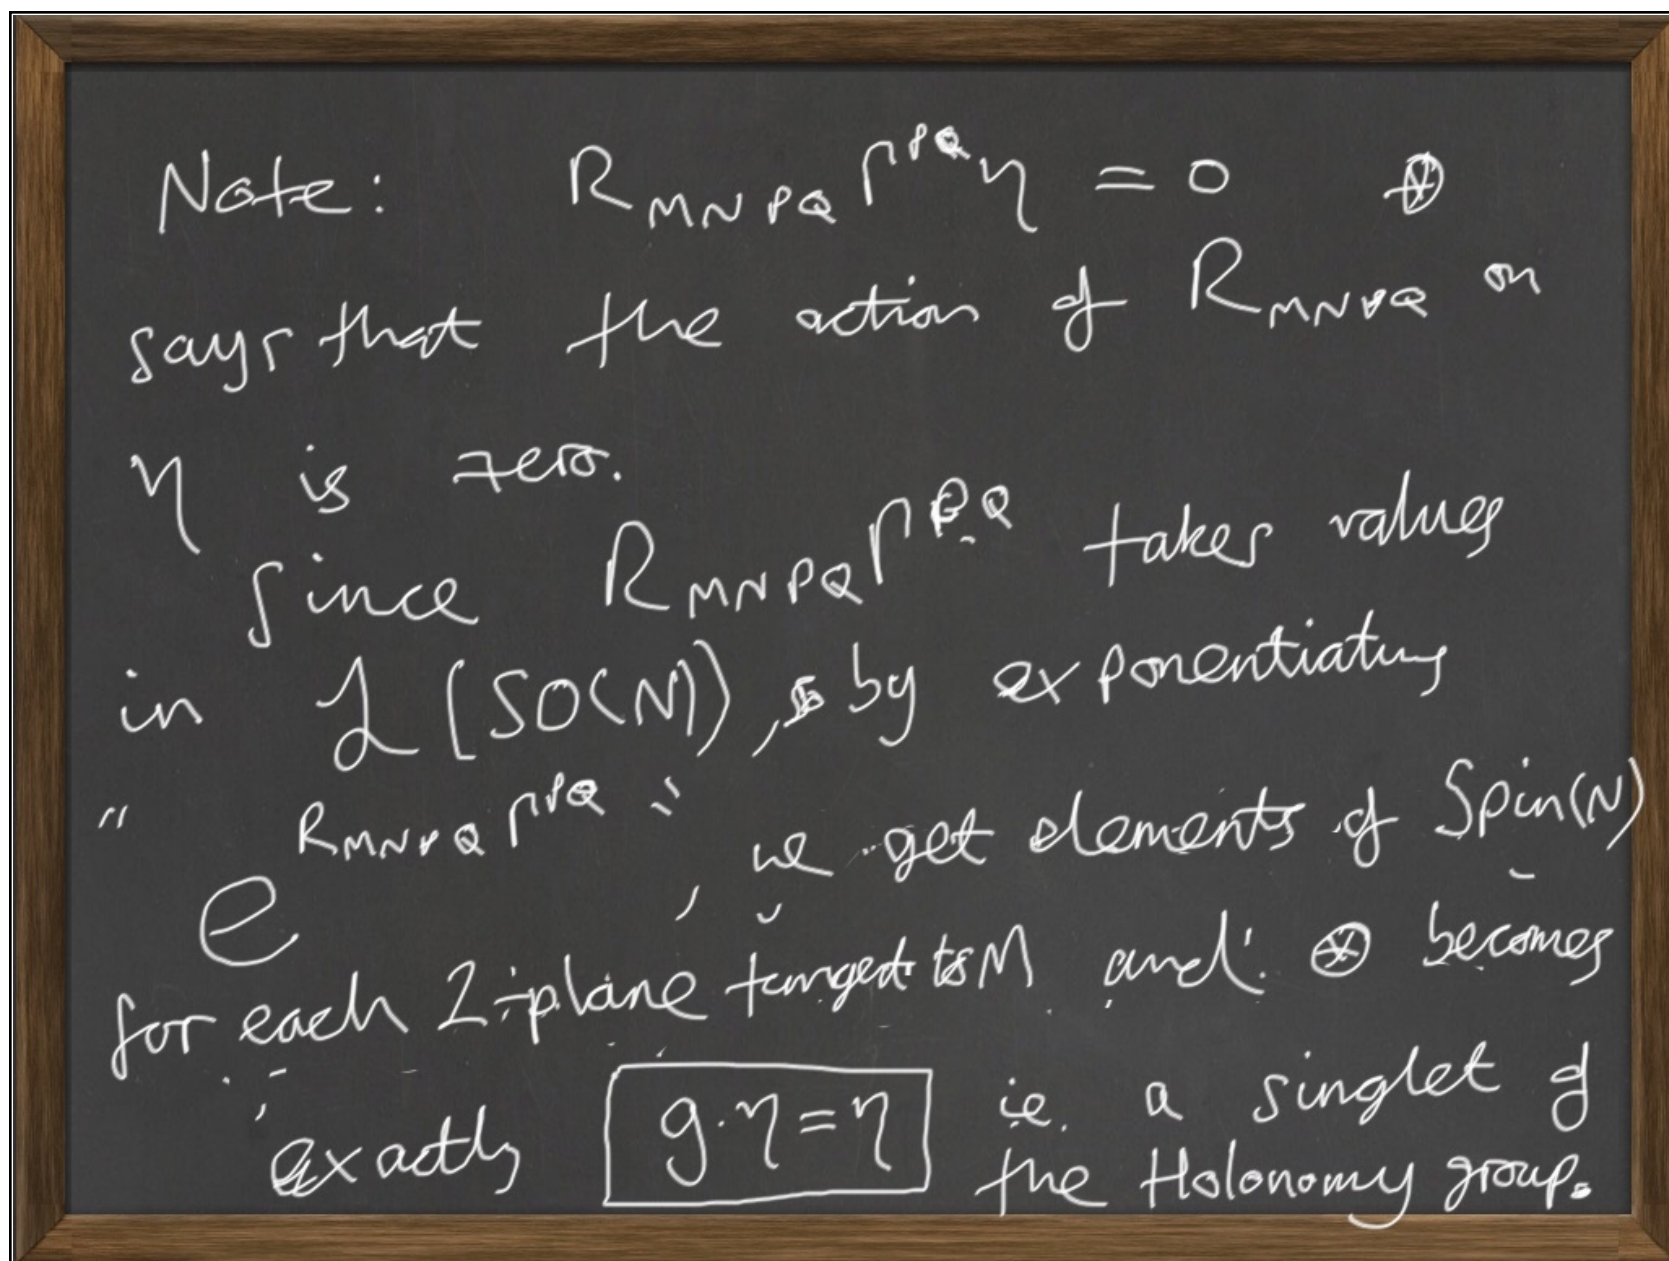 Note: R_{MNPQ} Γ^{PQ} η = 0 ⊛
says that the action of R_{MNPQ} on
η is zero.
Since R_{MNPQ} Γ^{PQ} takes values
in L(SO(N)), by exponentiating
" e^{R_{MNPQ} Γ^{PQ}} ", we get elements of Spin(N)
for each 2-plane tangent to M and ⊛ becomes
exactly g·η=η ie. a singlet of
the Holonomy group.